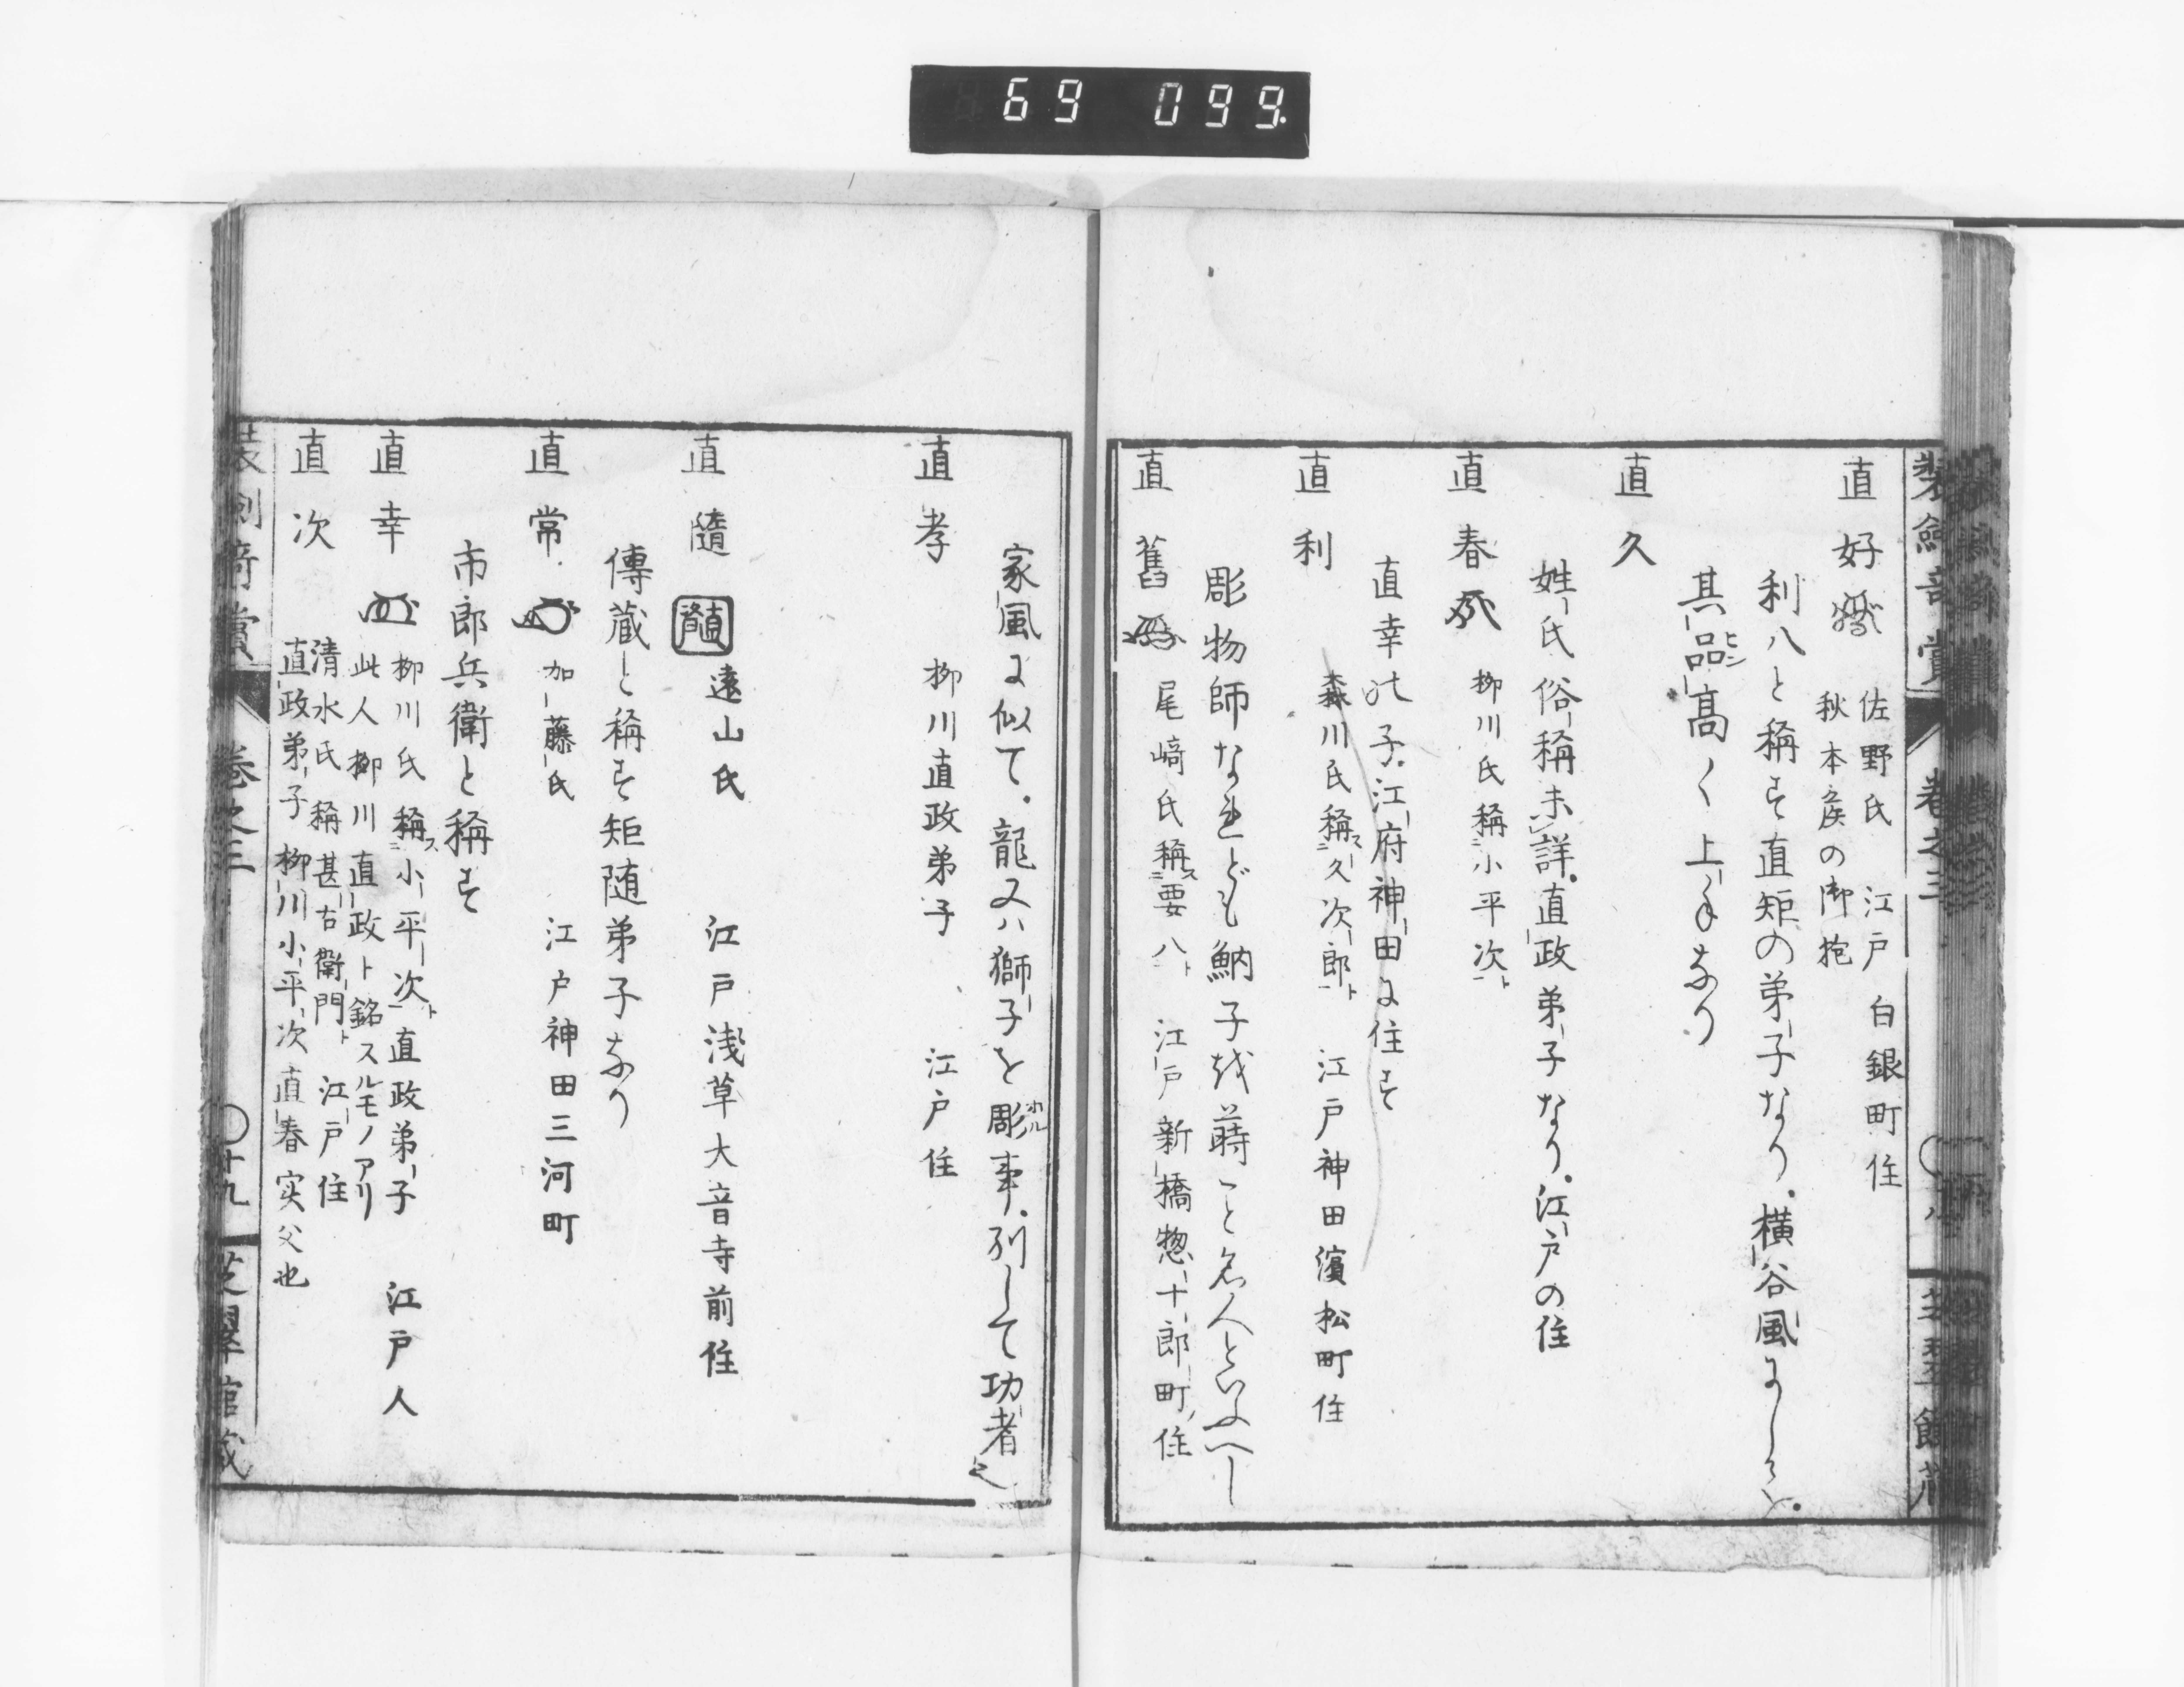 69 099.
装劔竒賞 巻之三
直好 佐野氏 江戸白銀町住
秋本侯の御抱
利八と稱す直矩の弟子なり。横谷風にして。
其品高く上手なり
直久
姓氏俗稱未詳。直政弟子なり。江戸の住
直春 柳川氏稱小平次ト
直幸の子。江府神田に住す
直利 森川氏稱ス久次郎ト 江戸神田濱松町住
彫物師なれども魵子を蒔こと名人といふへし
直舊 尾﨑氏稱ス要八ト 江戸新橋惣十郎町住
家風に似て。龍又ハ獅子を彫事。別して功者也
直孝 柳川直政弟子 江戸住
直隨 直隨 遠山氏 江戸浅草大音寺前住
傳蔵と稱す矩随弟子なり
直常 加藤氏 江戸神田三河町
市郎兵衛と稱す
直幸 柳川氏稱ス小平次ト直政弟子 江戸人
此人柳川直政ト銘スルモノアリ
直次 清水氏稱甚右衛門ト 江戸住
直政弟子柳川小平次直春実父也
装劍竒賞 巻之三 〇十九 芝翠館蔵